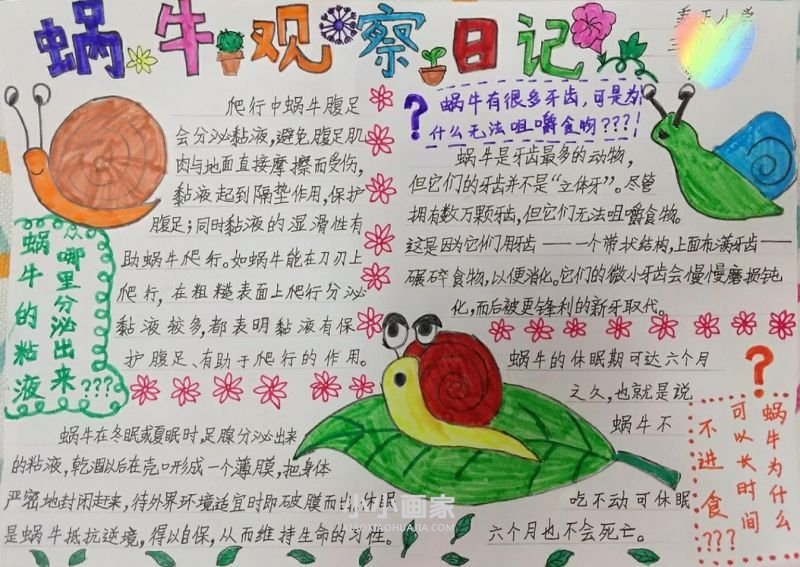 蜗牛观察日记
爬行中蜗牛腹足
会分泌黏液,避免腹足肌
肉与地面直接摩擦而受伤,
黏液起到隔垫作用,保护
腹足;同时黏液的湿滑性有
助蜗牛爬行。如蜗牛能在刀刃上
爬行,在粗糙表面上爬行分泌
黏液较多,都表明黏液有保
护腹足、有助于爬行的作用。
蜗牛的粘液
从哪里分泌出来
???
蜗牛在冬眠或夏眠时,足腺分泌出来
的粘液,乾涸以后在壳口形成一个薄膜,把身体
严密地封闭起来,待外界环境适宜时即破膜而出,休眠
是蜗牛抵抗逆境,得以自保,从而维持生命的习性。
?
蜗牛有很多牙齿,可是为
什么无法咀嚼食物???!
蜗牛是牙齿最多的动物,
但它们的牙齿并不是“立体牙”。尽管
拥有数万颗牙齿,但它们无法咀嚼食物。
这是因为它们用齿舌——一个带状结构,上面布满牙齿——
碾碎食物,以便消化。它们的微小牙齿会慢慢磨损钝
化,而后被更锋利的新牙取代。
蜗牛的休眠期可达六个月
之久,也就是说
蜗牛不
吃不动可休眠
六个月也不会死亡。
?
蜗牛为什么
可以长时间
不进食???
小小画家
XIAOXIAOHUAJIA.COM